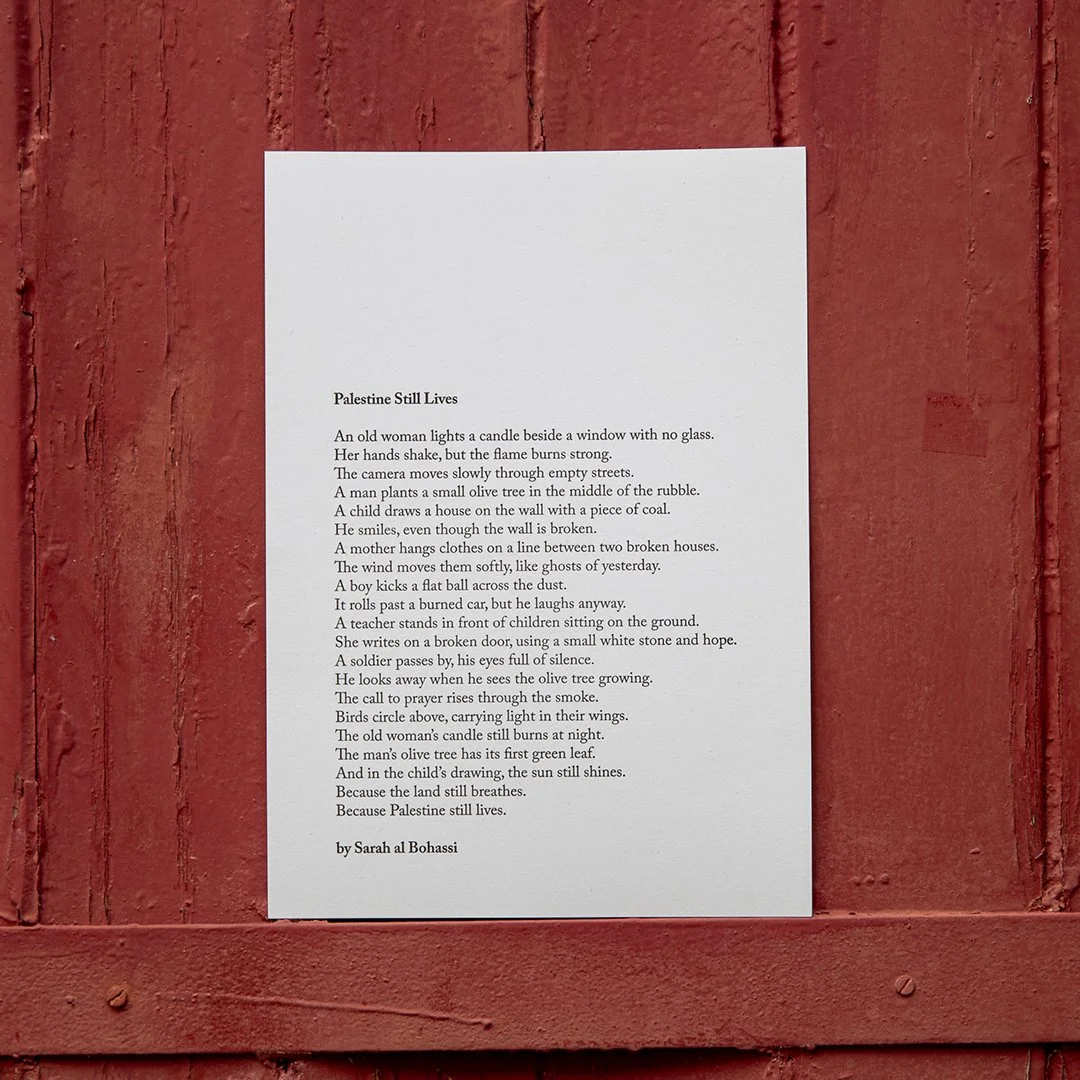 Palestine Still Lives
An old woman lights a candle beside a window with no glass.
Her hands shake, but the flame burns strong.
The camera moves slowly through empty streets.
A man plants a small olive tree in the middle of the rubble.
A child draws a house on the wall with a piece of coal.
He smiles, even though the wall is broken.
A mother hangs clothes on a line between two broken houses.
The wind moves them softly, like ghosts of yesterday.
A boy kicks a flat ball across the dust.
It rolls past a burned car, but he laughs anyway.
A teacher stands in front of children sitting on the ground.
She writes on a broken door, using a small white stone and hope.
A soldier passes by, his eyes full of silence.
He looks away when he sees the olive tree growing.
The call to prayer rises through the smoke.
Birds circle above, carrying light in their wings.
The old woman’s candle still burns at night.
The man’s olive tree has its first green leaf.
And in the child’s drawing, the sun still shines.
Because the land still breathes.
Because Palestine still lives.
by Sarah al Bohassi